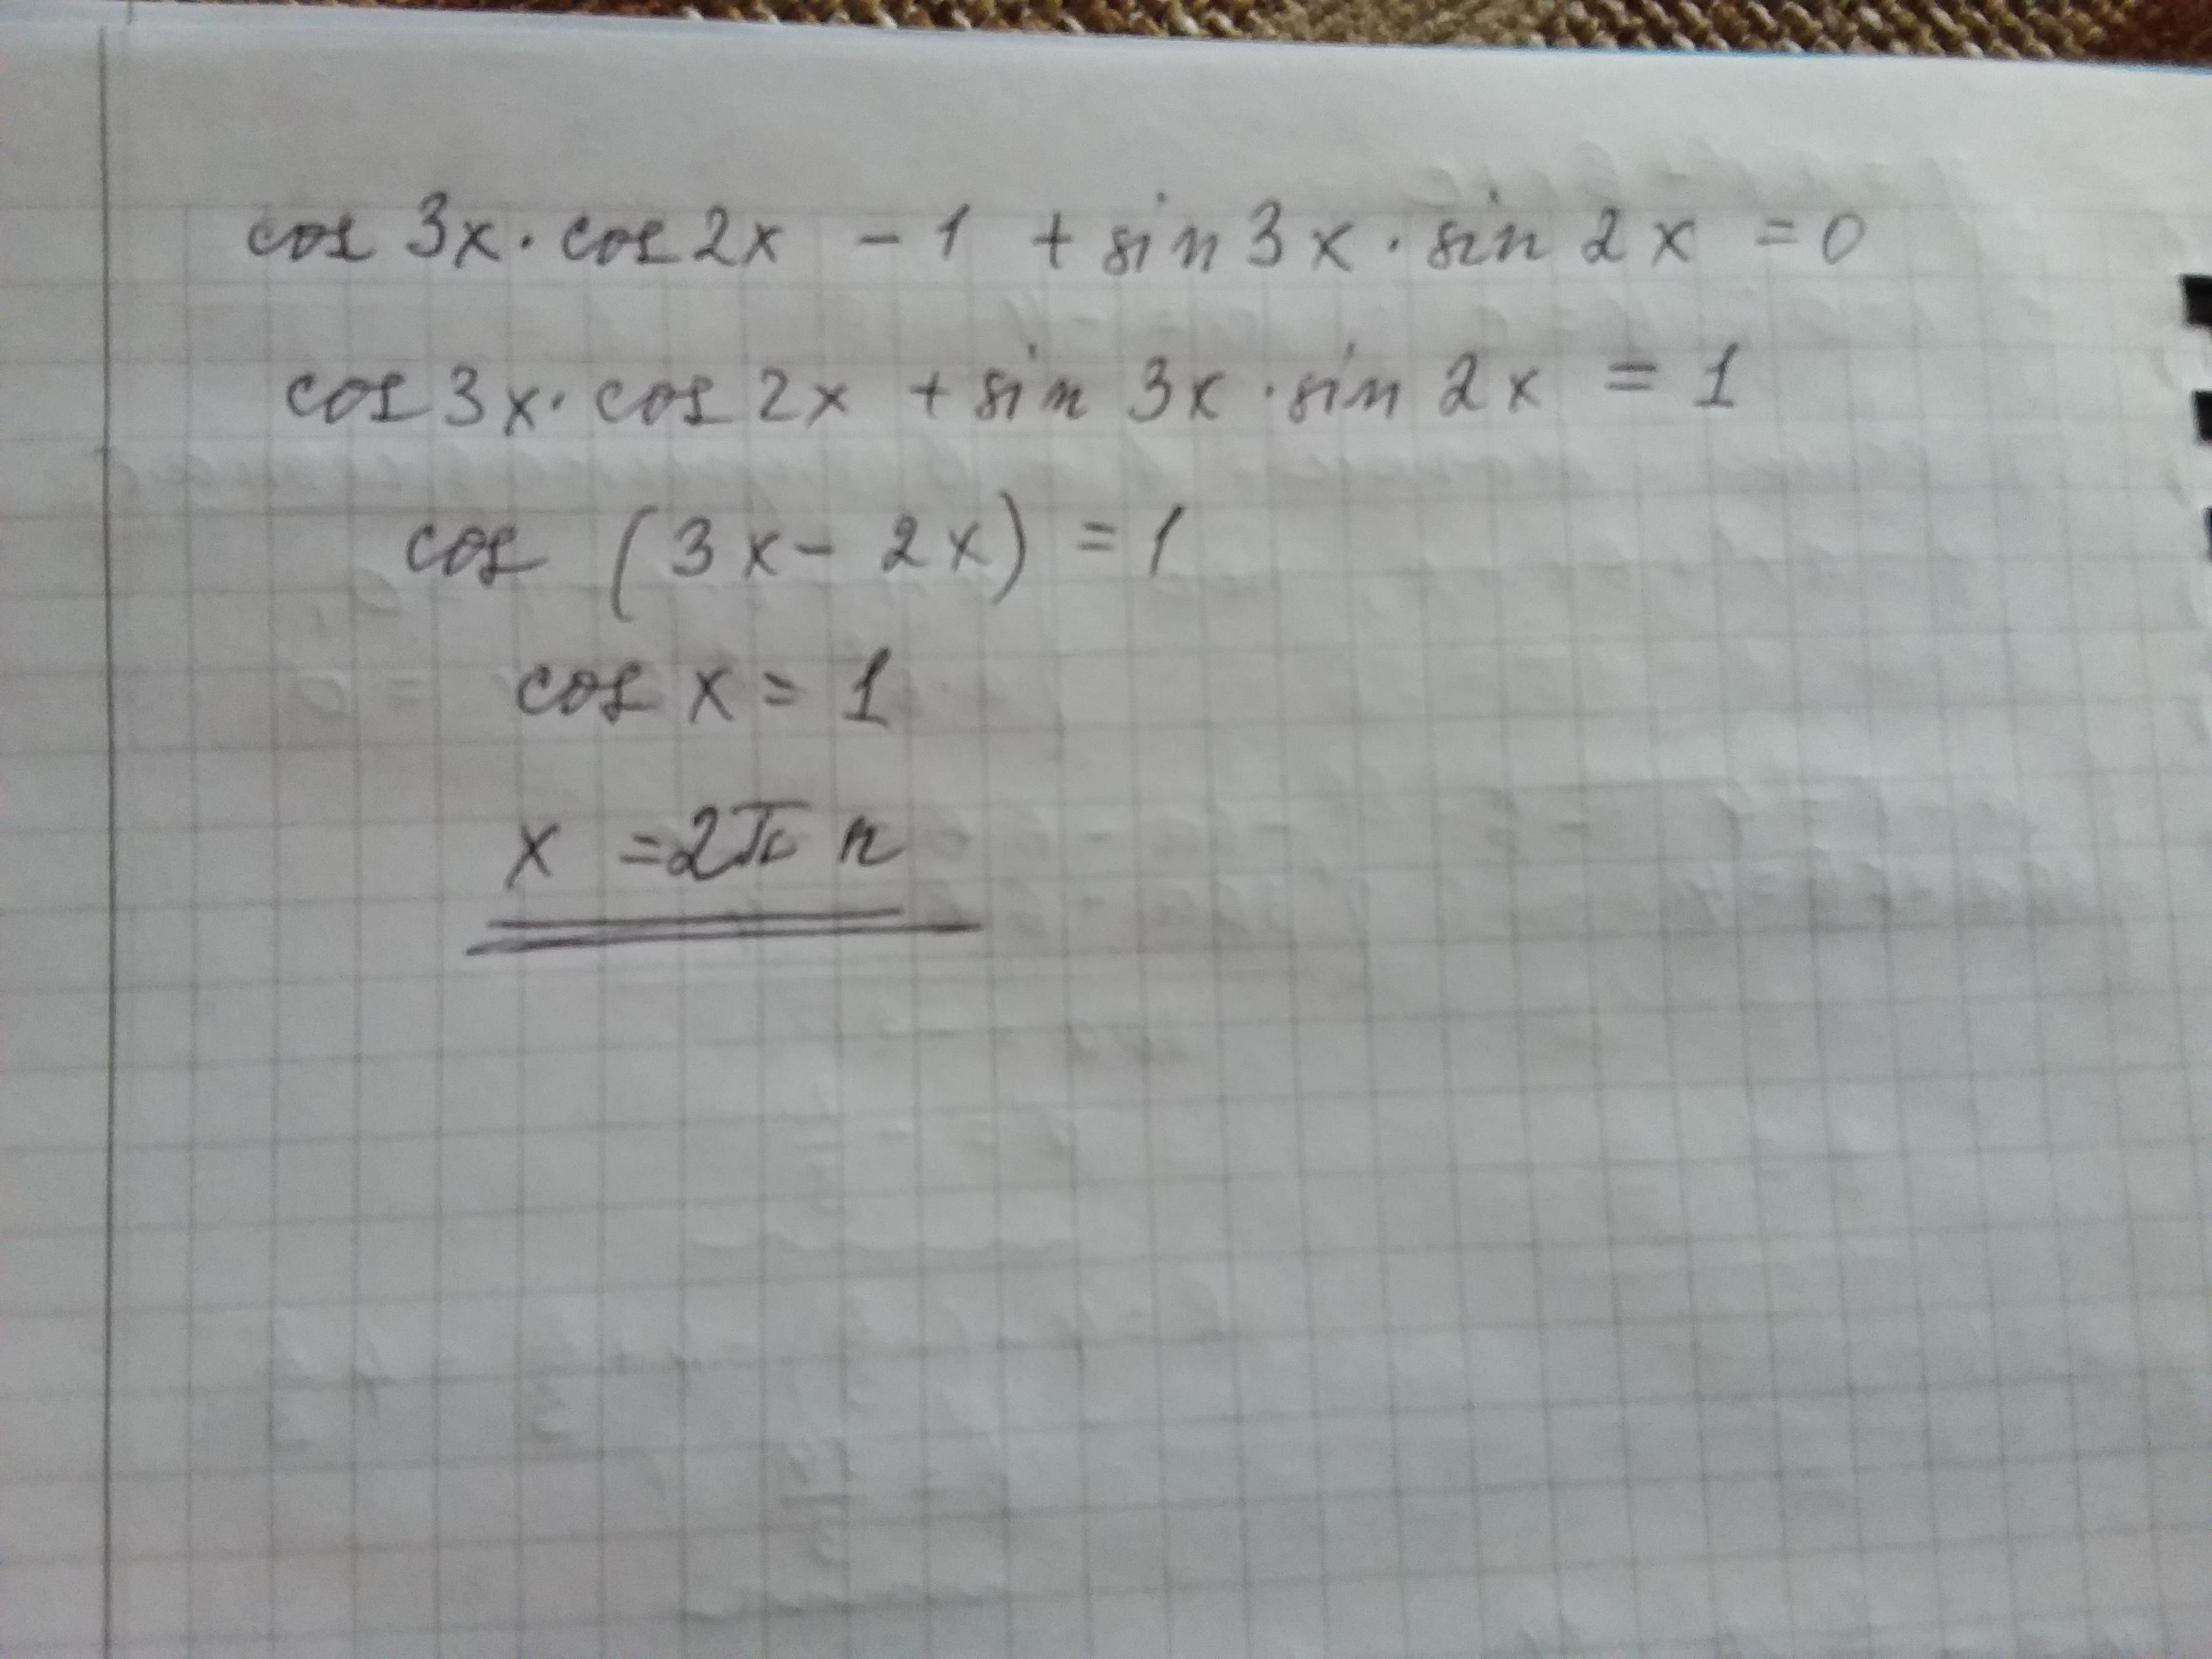 cos 3x · cos 2x - 1 + sin 3x · sin 2x = 0
cos 3x · cos 2x + sin 3x · sin 2x = 1
cos (3x - 2x) = 1
cos x = 1
x = 2π n